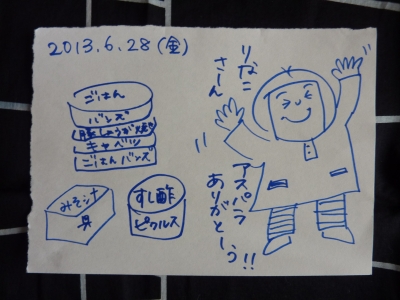 2013.6.28(金)
ごはん
バンズ
豚しょうが焼き
キャベツ
ごはんバンズ
みそ汁
具
すし酢
ピクルス
りなこ
さーん
アスパラ
ありがとーう!!